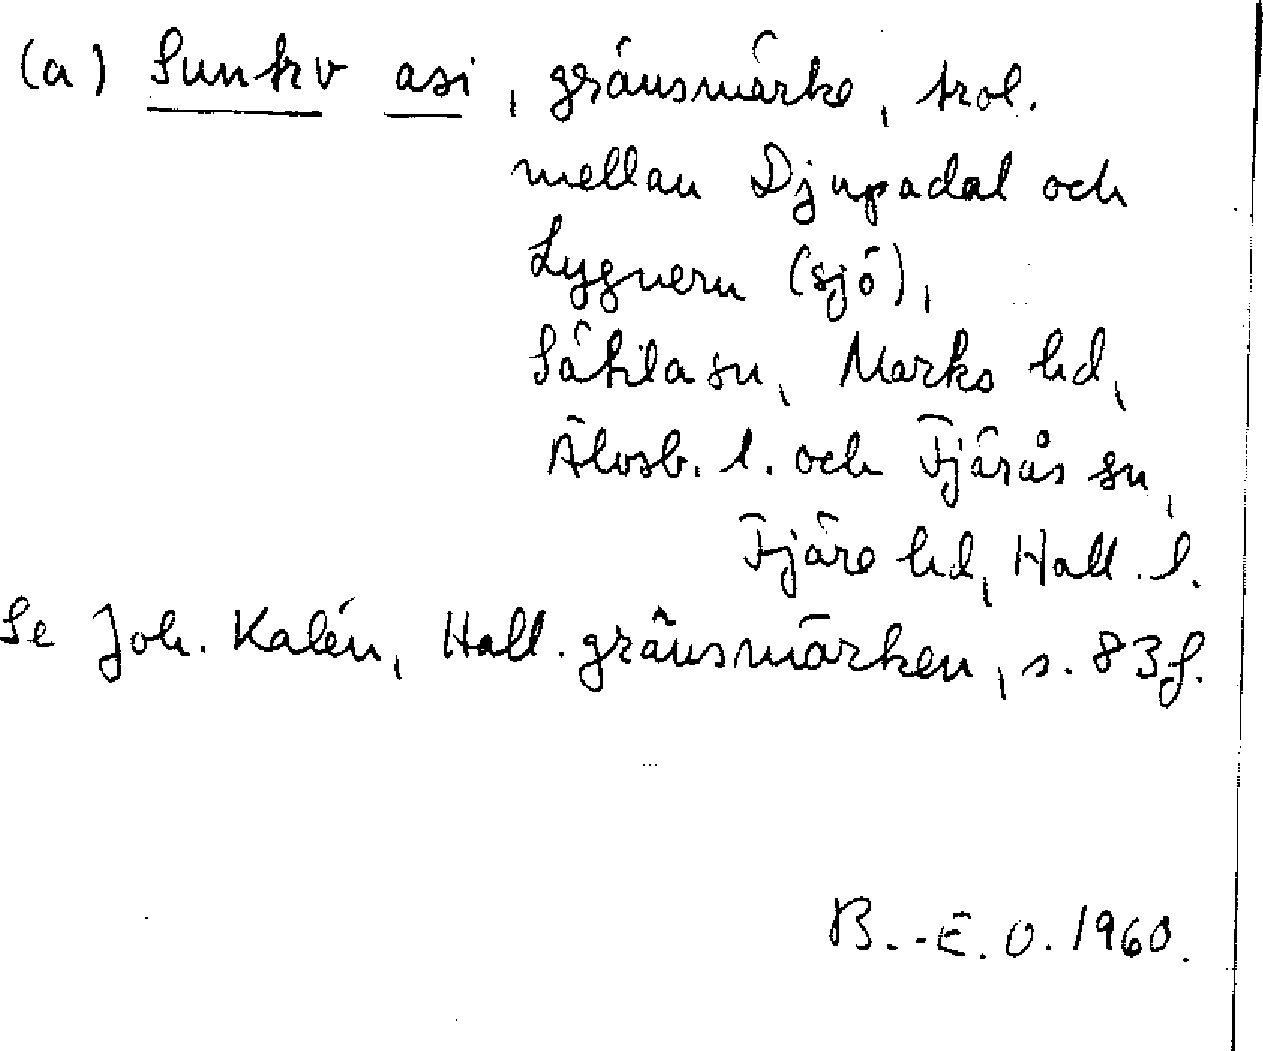 (a) Sunkv asi, gränsmärke, trol.
mellan Djupadal och
Lygnern (sjö),
Sätila sn, Marks hd,
Älvsb. l. och Fjärås sn,
Fjäre hd, Hall. l.
Se Joh. Kalén, Hall. gränsmärken, s. 83f.
B.-E. O. 1960.